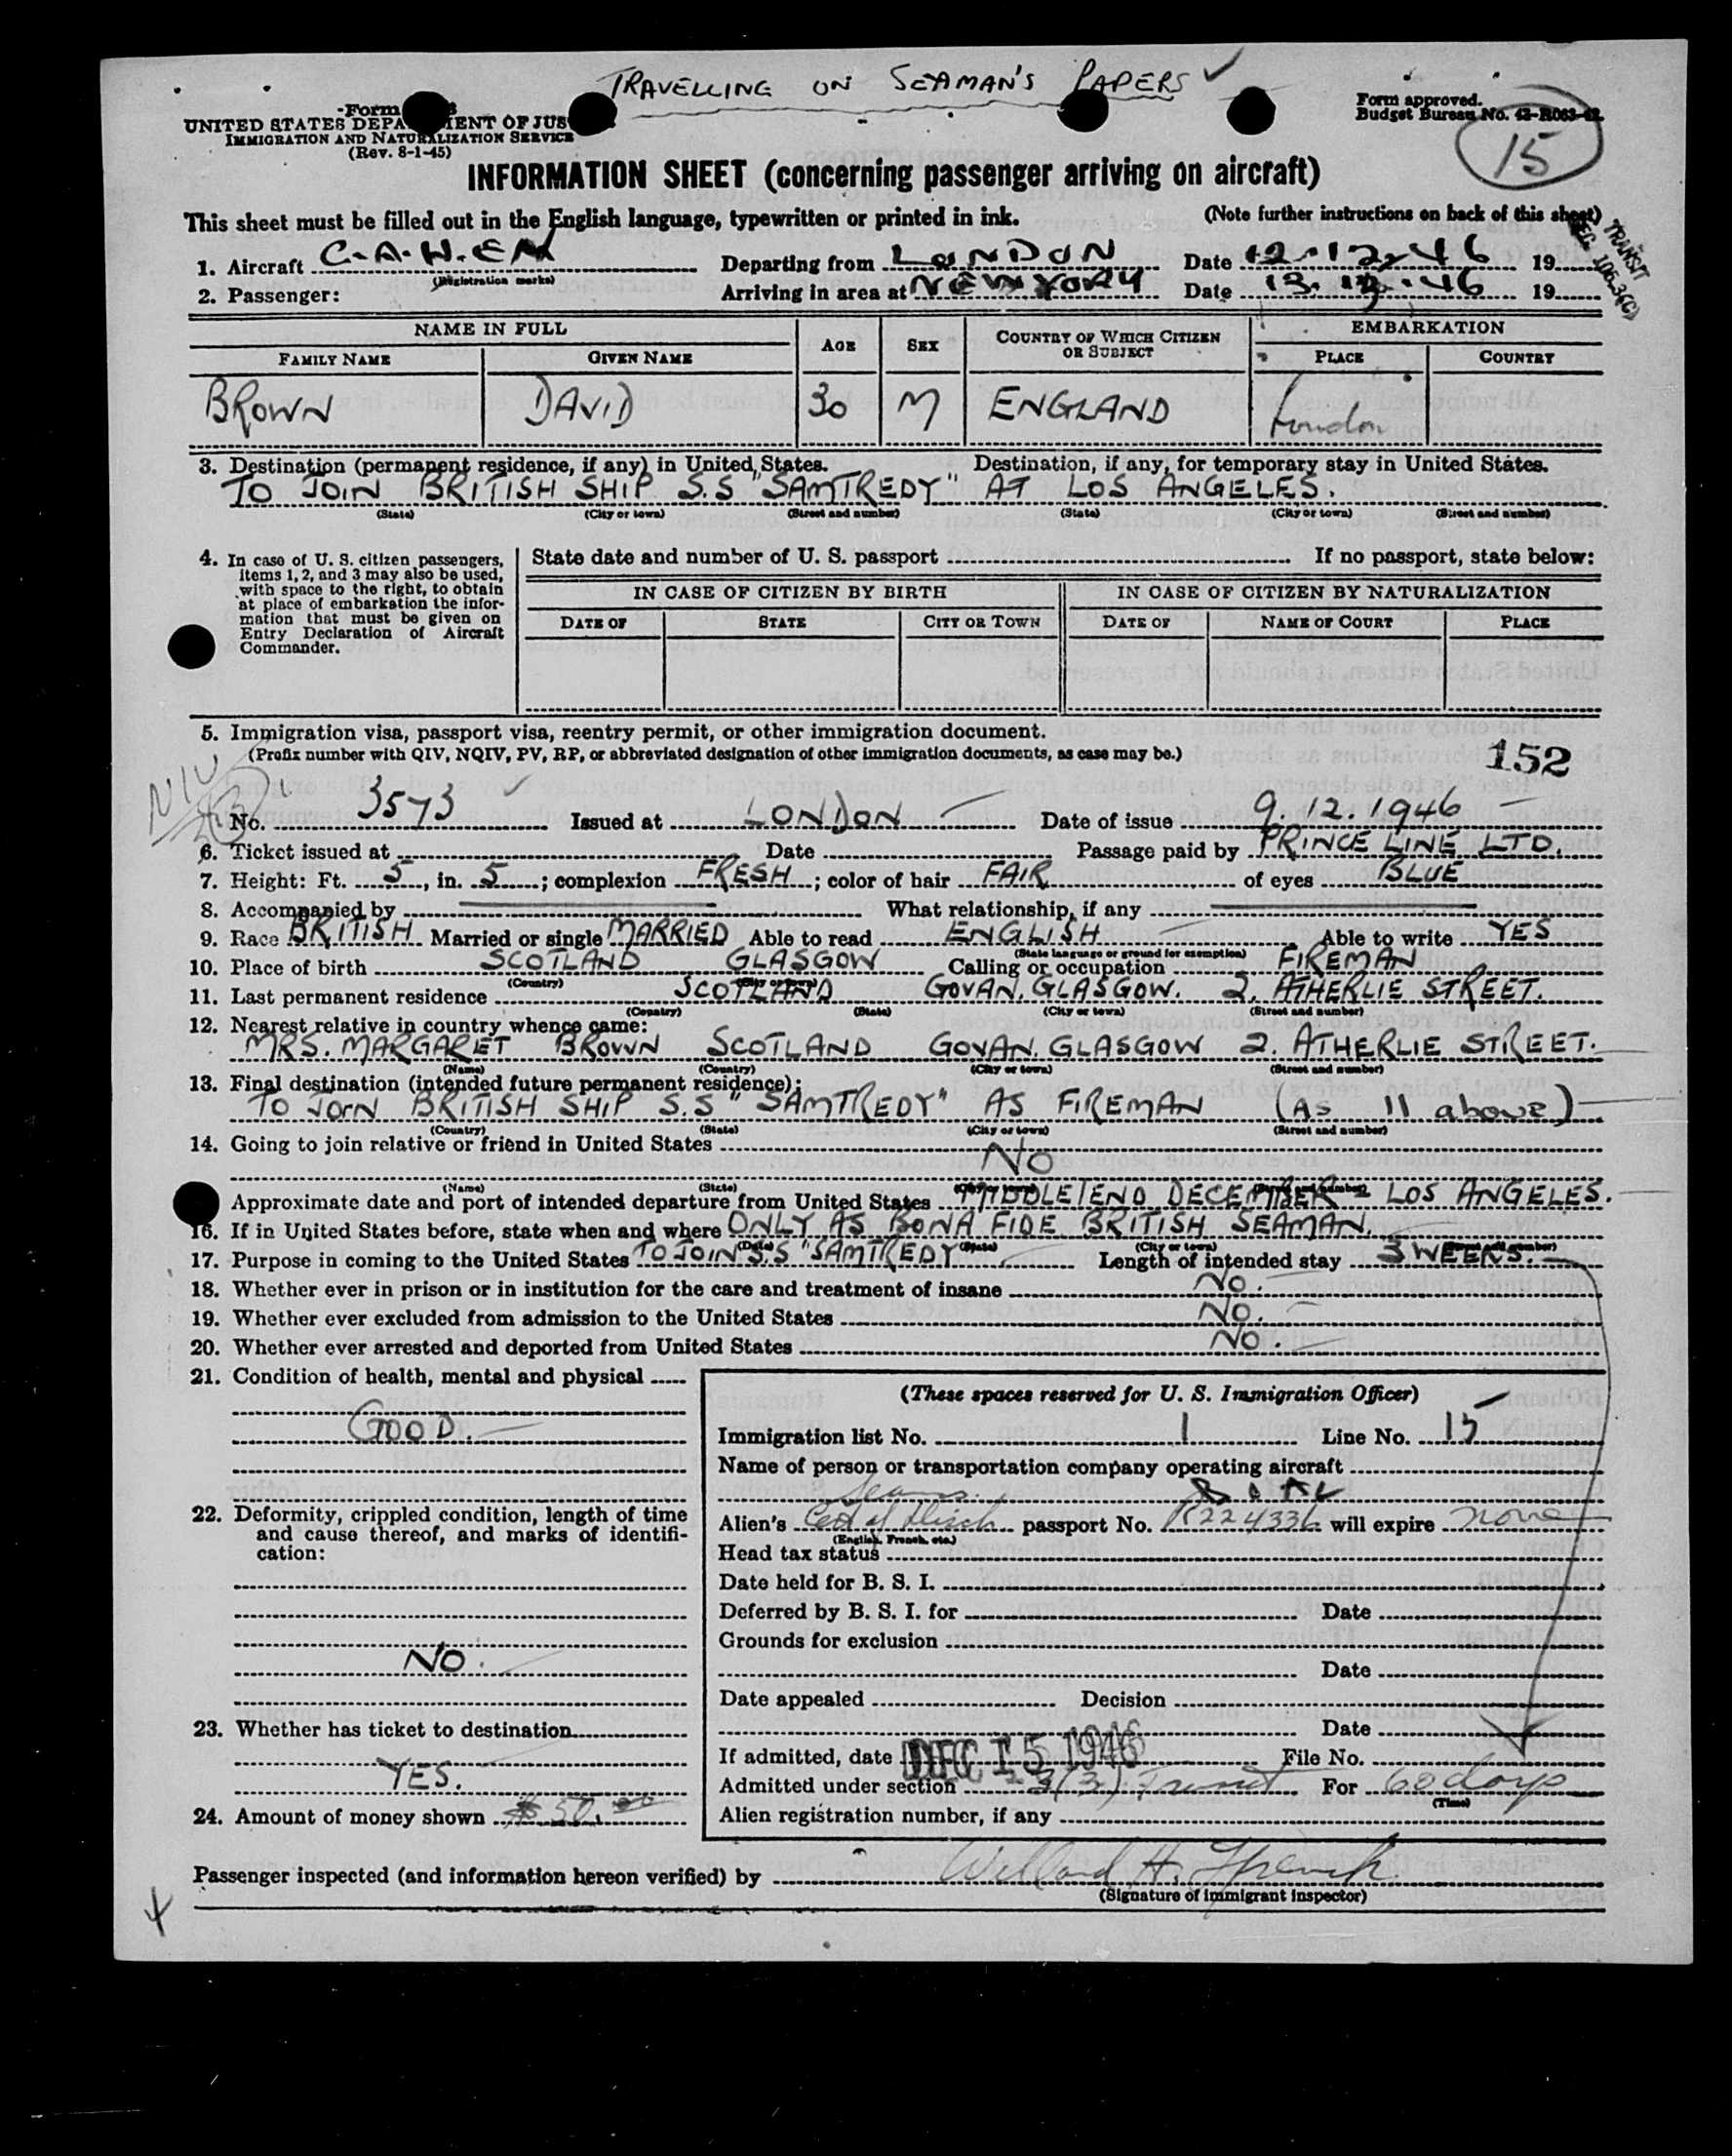 TRAVELLING ON SEAMAN'S PAPERS ✓
Form
UNITED STATES DEPARTMENT OF JUS
IMMIGRATION AND NATURALIZATION SERVICE
(Rev. 8-1-45)
Form approved.
Budget Bureau No. 43-R083-42.
15
INFORMATION SHEET (concerning passenger arriving on aircraft)
This sheet must be filled out in the English language, typewritten or printed in ink. (Note further instructions on back of this sheet)
TRANSIT
1. Aircraft Departing from LONDON Date 12.12.46 19
(Registration marks)
2. Passenger: Arriving in area at NEW YORK Date 13.12.46 19
NAME IN FULL AGE SEX COUNTRY OF WHICH CITIZEN OR SUBJECT EMBARKATION
FAMILY NAME GIVEN NAME PLACE COUNTRY
BROWN DAVID 30 M ENGLAND London
3. Destination (permanent residence, if any) in United States. Destination, if any, for temporary stay in United States.
TO JOIN BRITISH SHIP S.S "SAMTREDY" AT LOS ANGELES.
(State) (City or town) (Street and number) (State) (City or town) (Street and number)
4. In case of U. S. citizen passengers, items 1, 2, and 3 may also be used, with space to the right, to obtain at place of embarkation the information that must be given on Entry Declaration of Aircraft Commander.
State date and number of U. S. passport If no passport, state below:
IN CASE OF CITIZEN BY BIRTH IN CASE OF CITIZEN BY NATURALIZATION
DATE OF STATE CITY OR TOWN DATE OF NAME OF COURT PLACE
5. Immigration visa, passport visa, reentry permit, or other immigration document.
(Prefix number with QIV, NQIV, PV, RP, or abbreviated designation of other immigration documents, as case may be.)
152
No. 3573 Issued at LONDON Date of issue 9.12.1946
6. Ticket issued at Date Passage paid by PRINCE LINE LTD.
7. Height: Ft. 5, in. 5; complexion FRESH; color of hair FAIR of eyes BLUE
8. Accompanied by What relationship, if any
9. Race BRITISH Married or single MARRIED Able to read ENGLISH Able to write YES
(State language or ground for exemption)
10. Place of birth SCOTLAND GLASGOW Calling or occupation FIREMAN
(Country) (City or town)
11. Last permanent residence SCOTLAND GOVAN, GLASGOW. 2, ATHERLIE STREET.
(Country) (State) (City or town) (Street and number)
12. Nearest relative in country whence came:
MRS. MARGARET BROWN SCOTLAND GOVAN, GLASGOW 2. ATHERLIE STREET.
(Name) (Country) (City or town) (Street and number)
13. Final destination (intended future permanent residence):
TO JOIN BRITISH SHIP S.S "SAMTREDY" AS FIREMAN (AS 11 above)
(Country) (State) (City or town) (Street and number)
14. Going to join relative or friend in United States NO
(Name) (State) (City or town) (Street and number)
Approximate date and port of intended departure from United States MIDDLE/END DECEMBER LOS ANGELES.
16. If in United States before, state when and where ONLY AS BONA FIDE BRITISH SEAMAN.
(Date) (State) (City or town) (Street and number)
17. Purpose in coming to the United States TO JOIN S.S "SAMTREDY" Length of intended stay 3 WEEKS.
18. Whether ever in prison or in institution for the care and treatment of insane NO.
19. Whether ever excluded from admission to the United States NO.
20. Whether ever arrested and deported from United States NO.
21. Condition of health, mental and physical
GOOD.
22. Deformity, crippled condition, length of time and cause thereof, and marks of identification:
NO.
23. Whether has ticket to destination
YES.
24. Amount of money shown $50.00
(These spaces reserved for U. S. Immigration Officer)
Immigration list No. 1 Line No. 15
Name of person or transportation company operating aircraft
Alien's passport No. R224336 will expire none
(English, French, etc.)
Head tax status
Date held for B. S. I.
Deferred by B. S. I. for Date
Grounds for exclusion
Date
Date appealed Decision
Date
If admitted, date DEC 15 1946 File No.
Admitted under section 3(3) Transit For 60 days
(Time)
Alien registration number, if any
Passenger inspected (and information hereon verified) by Willard H. French
(Signature of immigrant inspector)